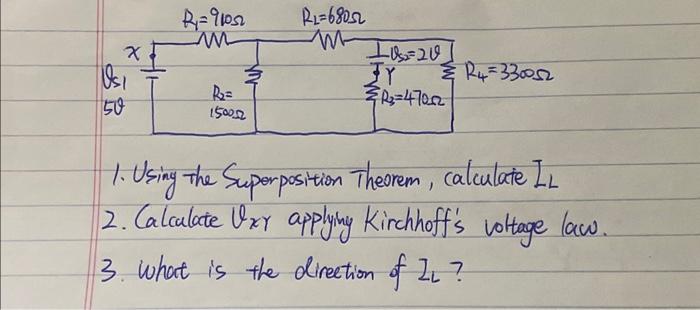 R1=910Ω RL=680Ω
X VS2=2V
VS1 Y R4=3300Ω
5V R2= R3=470Ω
1500Ω
1. Using the Superposition Theorem, calculate IL
2. Calculate VXY applying Kirchhoff's voltage law.
3. What is the direction of IL?